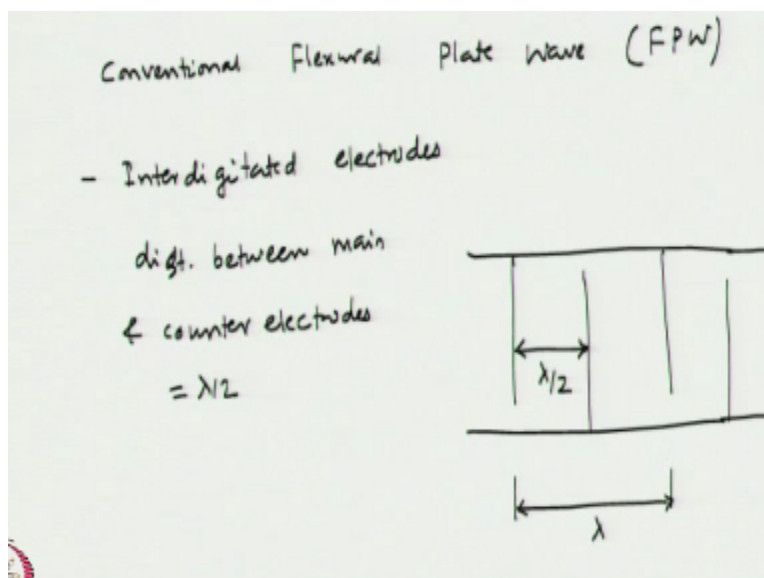 Conventional Flexural Plate Wave (FPW)
- Interdigitated electrodes
dist. between main
& counter electrodes
= λ/2
λ/2
λ